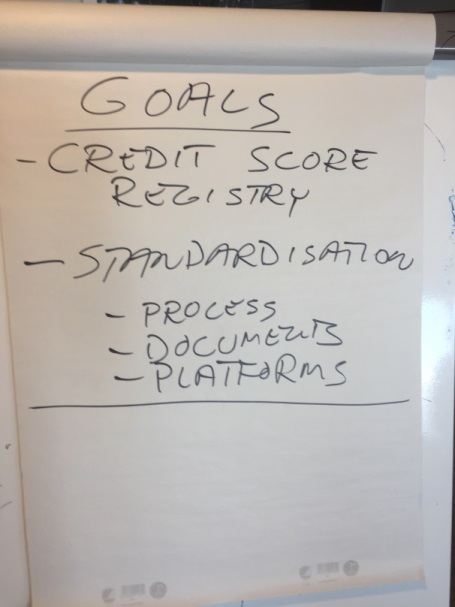 GOALS
- CREDIT SCORE
REGISTRY
- STANDARDISATION
- PROCESS
- DOCUMENTS
- PLATFORMS